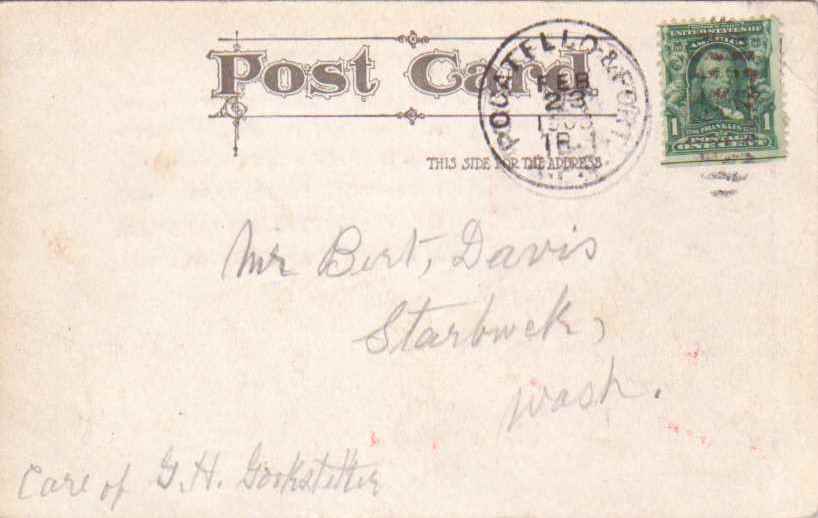 Post Card.
POCATELLO & PORT.
FEB
23
UNITED STATES OF
AMERICA
1 FRANKLIN 1
POSTAGE
ONE CENT
THIS SIDE FOR THE ADDRESS
Mr Bert, Davis
Starbuck,
Wash.
Care of G.H. Gookstetter